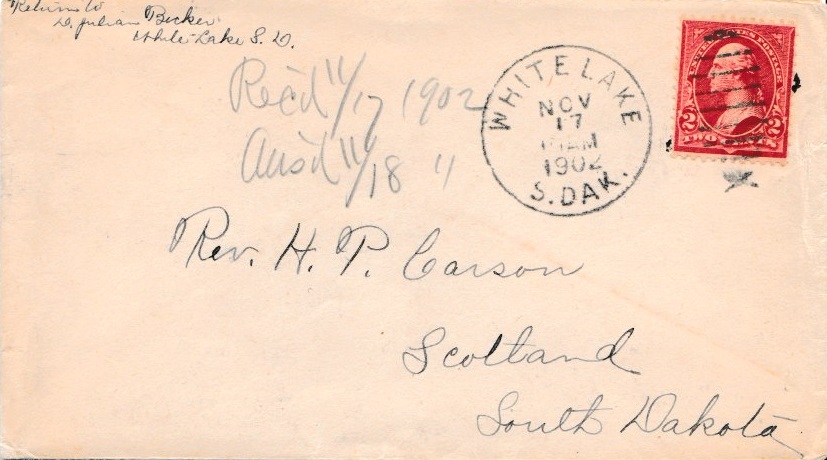 Return to
D. Julian Becker
White Lake S. D.
Rec'd 11/17 1902
Ans'd 11/18 "
WHITE LAKE
NOV
17
AM
1902
S. DAK.
2 2
Rev. H. P. Carson
Scotland
South Dakota